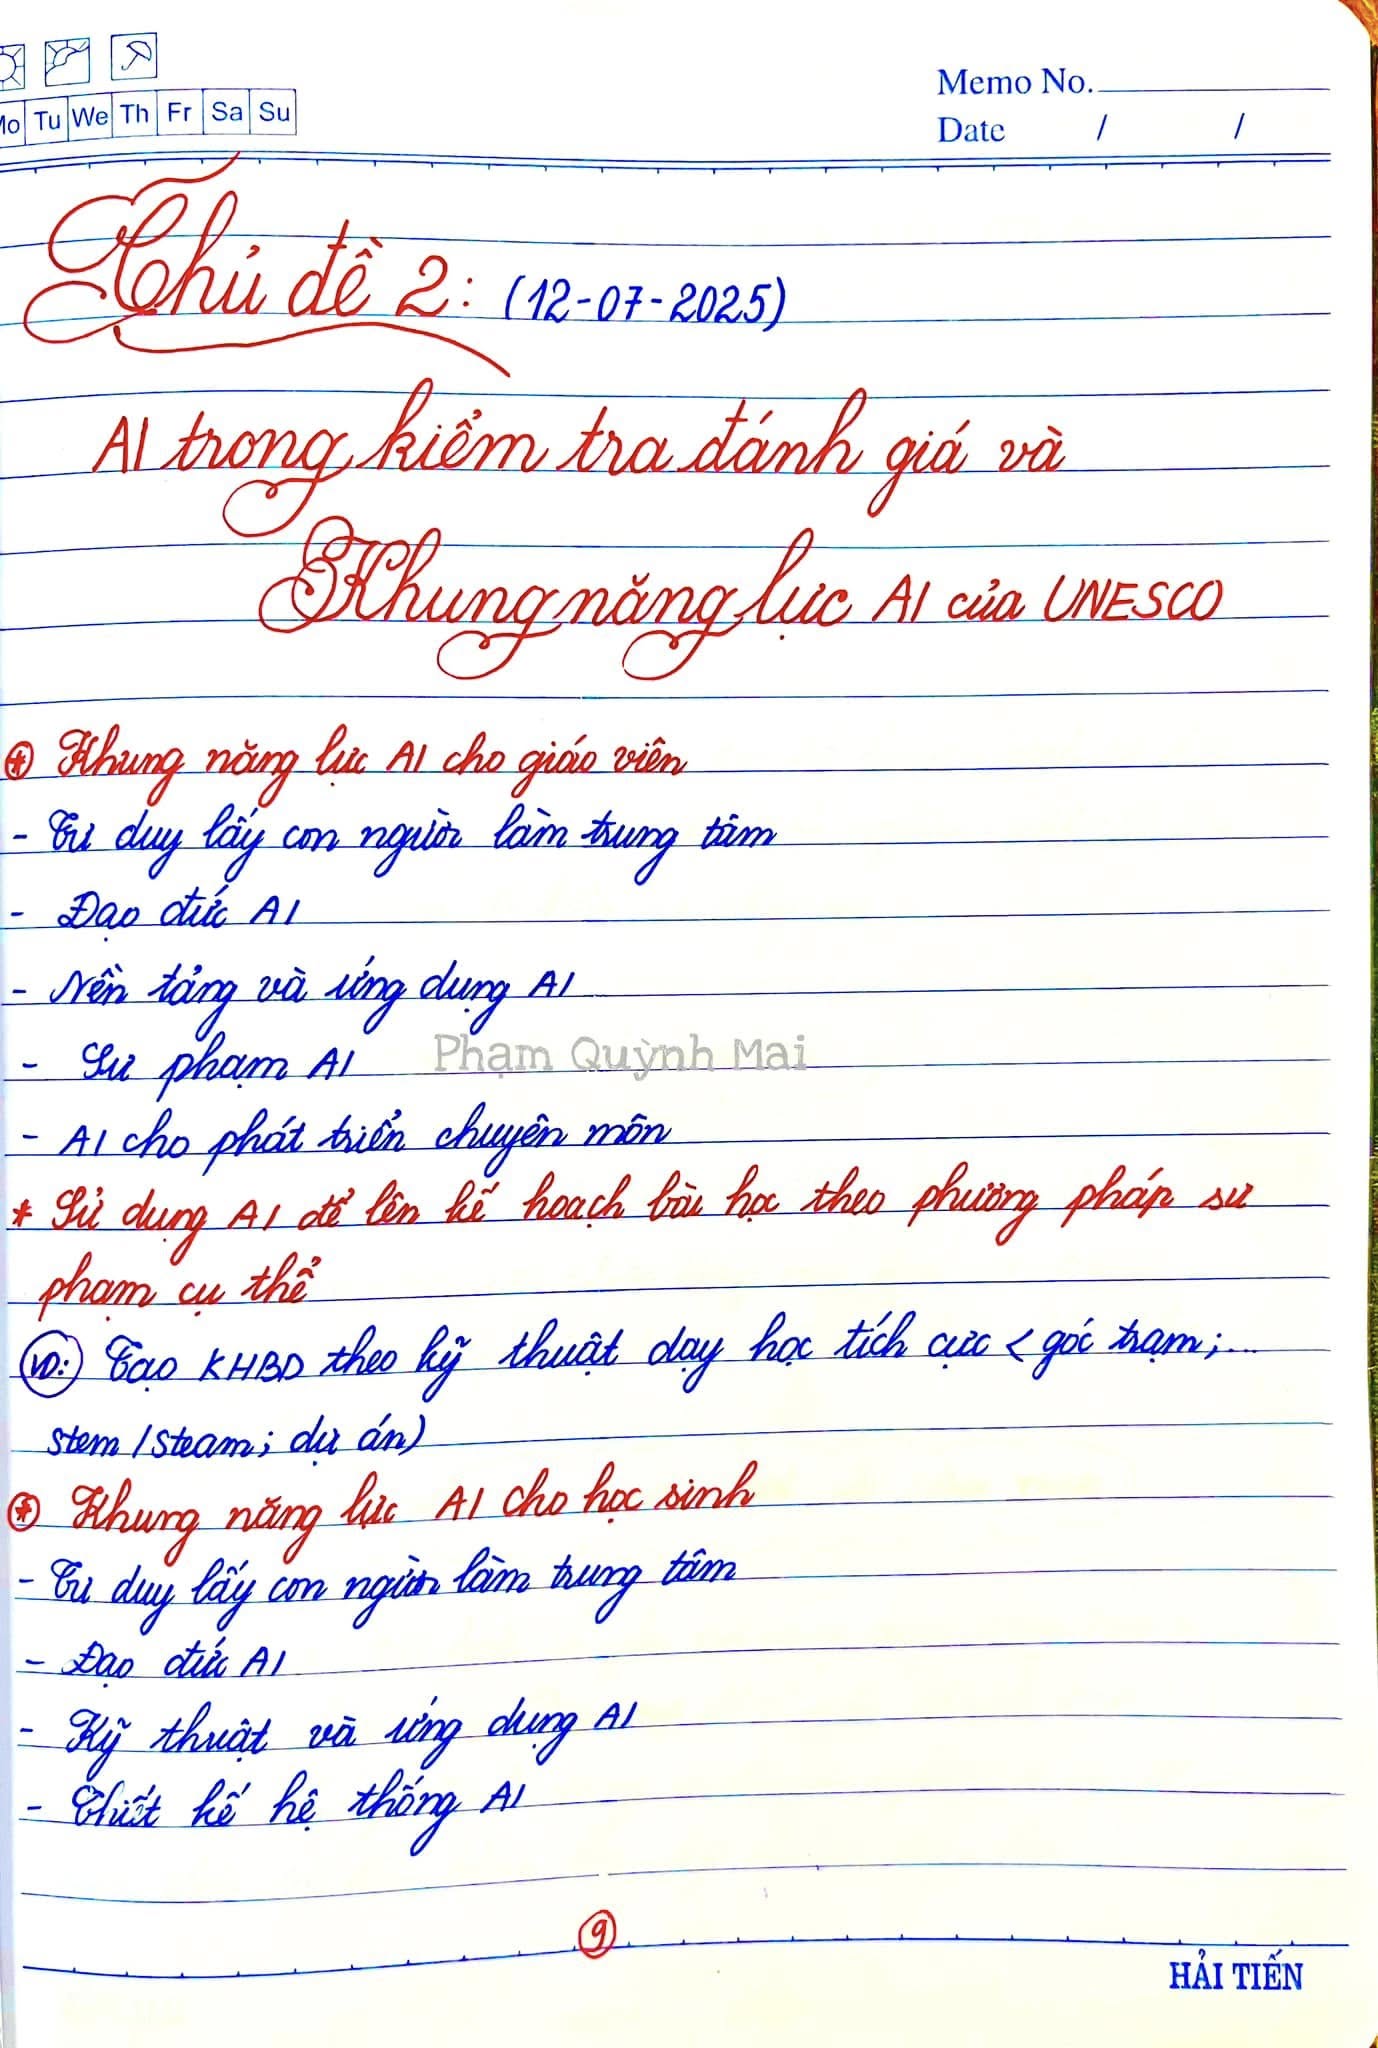 Mo Tu We Th Fr Sa Su
Memo No.
Date / /
Chủ đề 2: (12-07-2025)
AI trong kiểm tra đánh giá và
Khung năng lực AI của UNESCO
* Khung năng lực AI cho giáo viên
- Tư duy lấy con người làm trung tâm
- Đạo đức AI
- Nền tảng và ứng dụng AI
- Sư phạm AI
Phạm Quỳnh Mai
- AI cho phát triển chuyên môn
* Sử dụng AI để lên kế hoạch bài học theo phương pháp sư
phạm cụ thể
VD: Tạo KHBD theo kỹ thuật dạy học tích cực < góc trạm; ...
stem / steam; dự án)
* Khung năng lực AI cho học sinh
- Tư duy lấy con người làm trung tâm
- Đạo đức AI
- Kỹ thuật và ứng dụng AI
- Thiết kế hệ thống AI
9
HẢI TIẾN